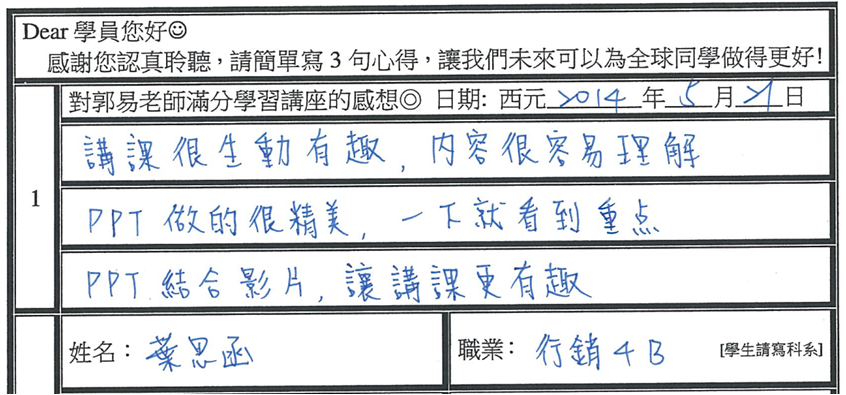 Dear 學員您好☺
感謝您認真聆聽，請簡單寫 3 句心得，讓我們未來可以為全球同學做得更好!
對郭易老師滿分學習講座的感想◎ 日期: 西元 2014 年 5 月 21 日
講課很生動有趣，內容很容易理解
1
PPT 做的很精美，一下就看到重点
PPT 結合影片，讓講課更有趣
姓名： 葉思函 職業： 行銷4B [學生請寫科系]